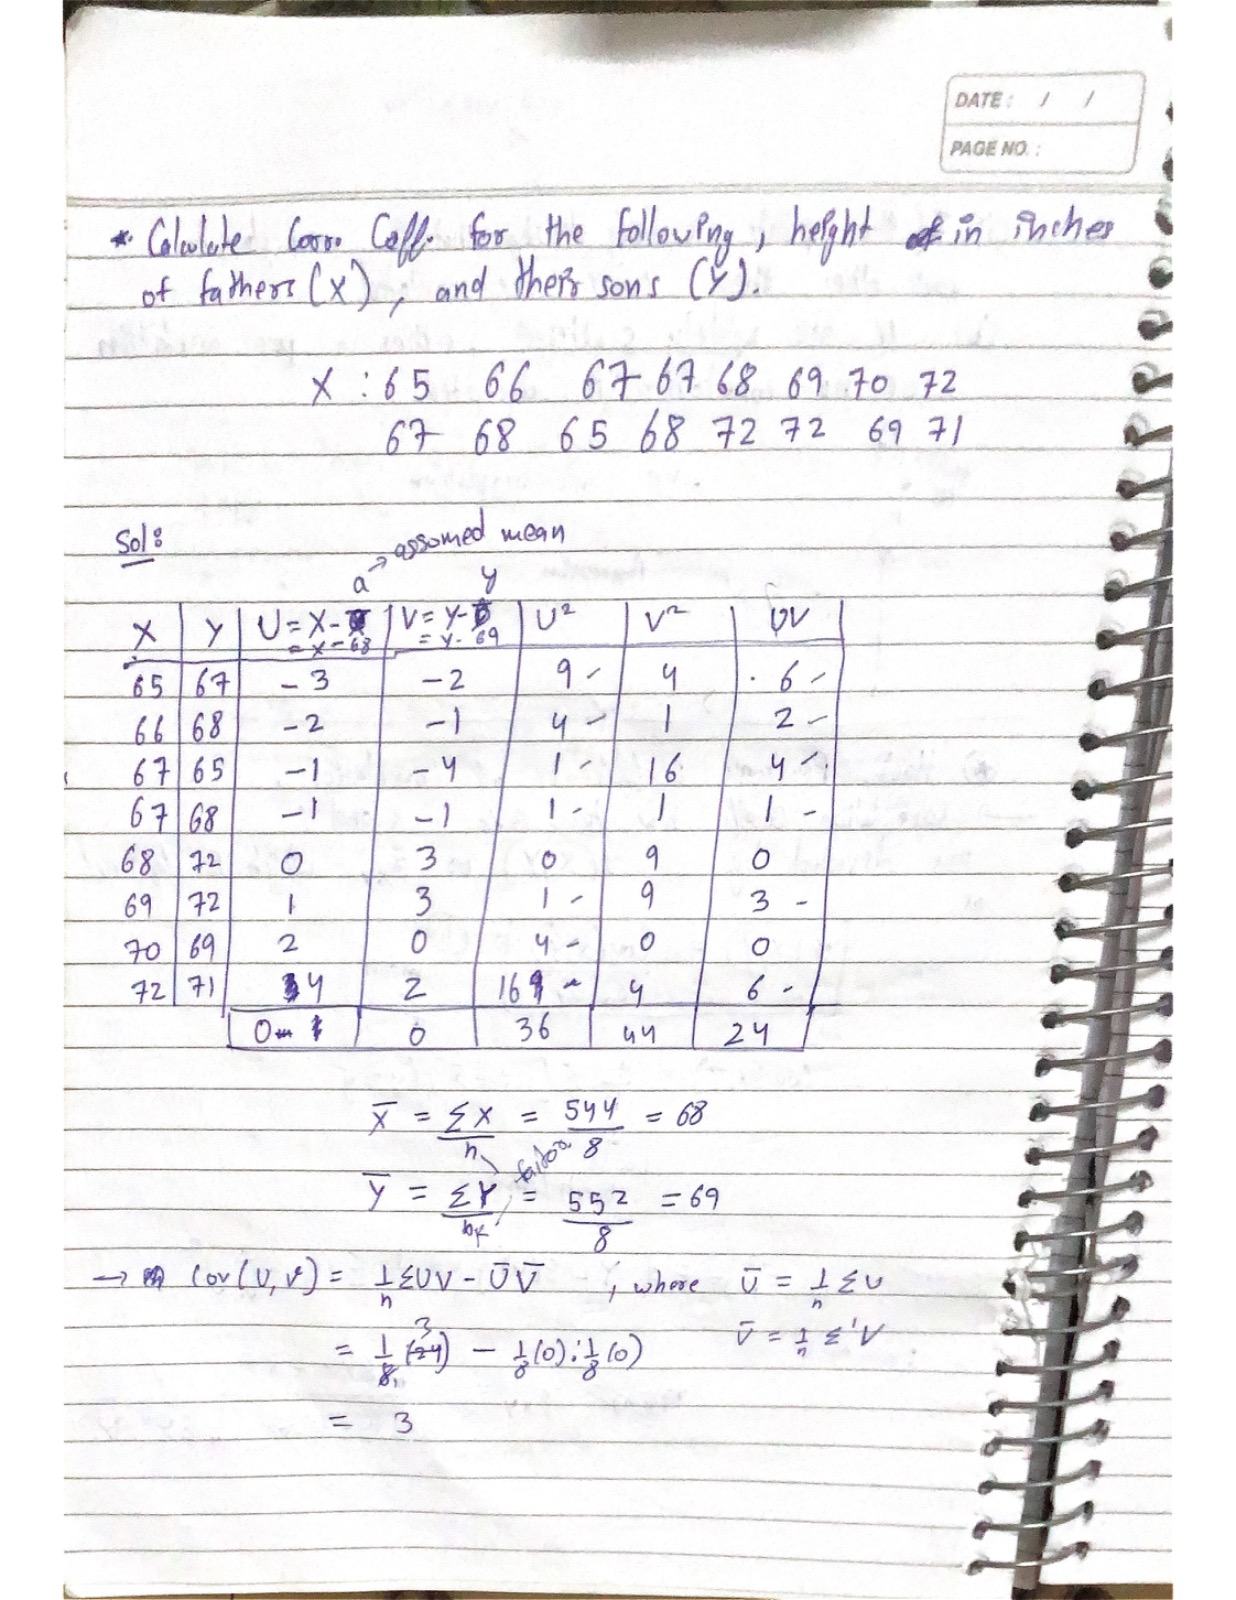 DATE: / /
PAGE NO.:
* Calculate Corro. Coff. for the following, height in inches
of fathers (X), and their sons (Y).
X : 65 66 67 67 68 69 70 72
67 68 65 68 72 72 69 71
Sol:
a → assomed mean
y
X Y U = X- V = Y- U² V² UV
= X-68 = Y-69
65 67 -3 -2 9 4 6
66 68 -2 -1 4 1 2
67 65 -1 -4 1 16 4
67 68 -1 -1 1 1 1
68 72 0 3 0 9 0
69 72 1 3 1 9 3
70 69 2 0 4 0 0
72 71 4 2 16 4 6
0 0 36 44 24
X̄ = ΣX/n = 544/8 = 68
Ȳ = ΣY/n = 552/8 = 69
→ Cov(U,V) = 1/n ΣUV - Ū V̄ , where Ū = 1/n ΣU
= 1/8 (24) 3 - 1/8(0) . 1/8(0) V̄ = 1/n Σ V
= 3